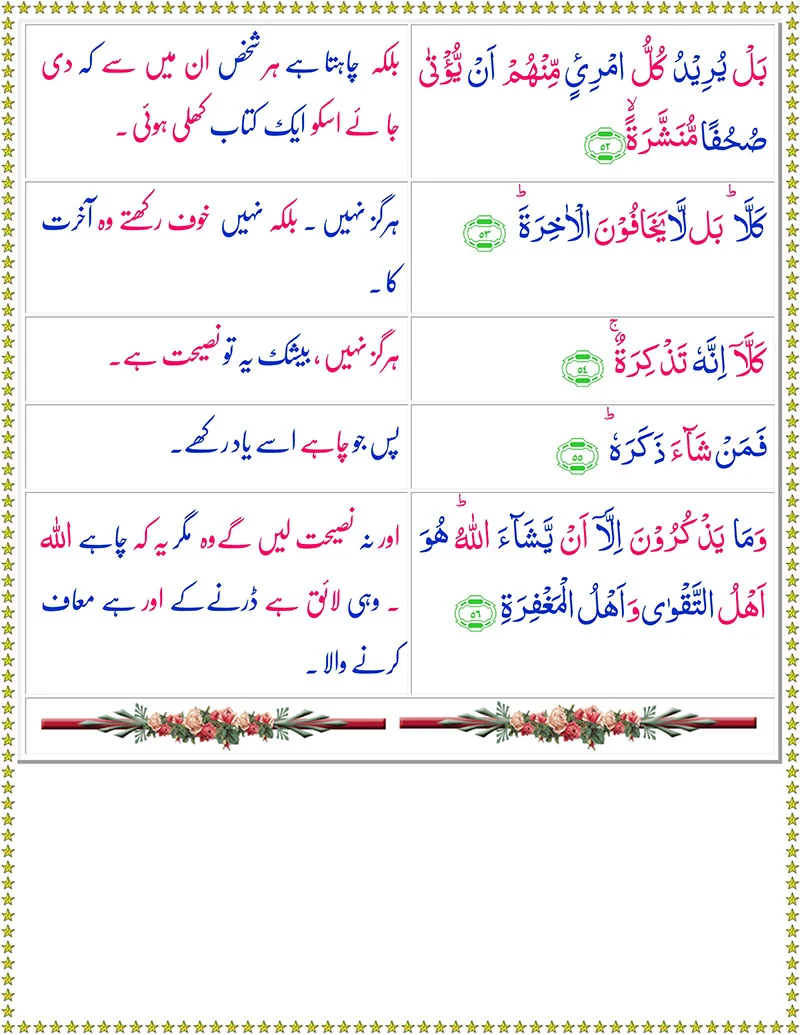 بَلْ يُرِيْدُ كُلُّ امْرِئٍ مِّنْهُمْ اَنْ يُّؤْتٰى
صُحُفًا مُّنَشَّرَةً ۙ ٥٢
بلکہ چاہتا ہے ہر شخص ان میں سے کہ دی
جائے اسکو ایک کتاب کھلی ہوئی ۔
كَلَّا ؕ بَل لَّا يَخَافُوْنَ الْاٰخِرَةَ ؕ ٥٣
ہرگز نہیں ۔ بلکہ نہیں خوف رکھتے وہ آخرت
کا ۔
كَلَّاۤ اِنَّهٗ تَذْكِرَةٌ ۚ ٥٤
ہرگز نہیں ، بیشک یہ تو نصیحت ہے ۔
فَمَنْ شَآءَ ذَكَرَهٗ ؕ ٥٥
پس جو چاہے اسے یاد رکھے ۔
وَمَا يَذْكُرُوْنَ اِلَّاۤ اَنْ يَّشَآءَ اللّٰهُ ؕ هُوَ
اَهْلُ التَّقْوٰى وَاَهْلُ الْمَغْفِرَةِ ٥٦
اور نہ نصیحت لیں گے وہ مگر یہ کہ چاہے اللہ
۔ وہی لائق ہے ڈرنے کے اور ہے معاف
کرنے والا ۔